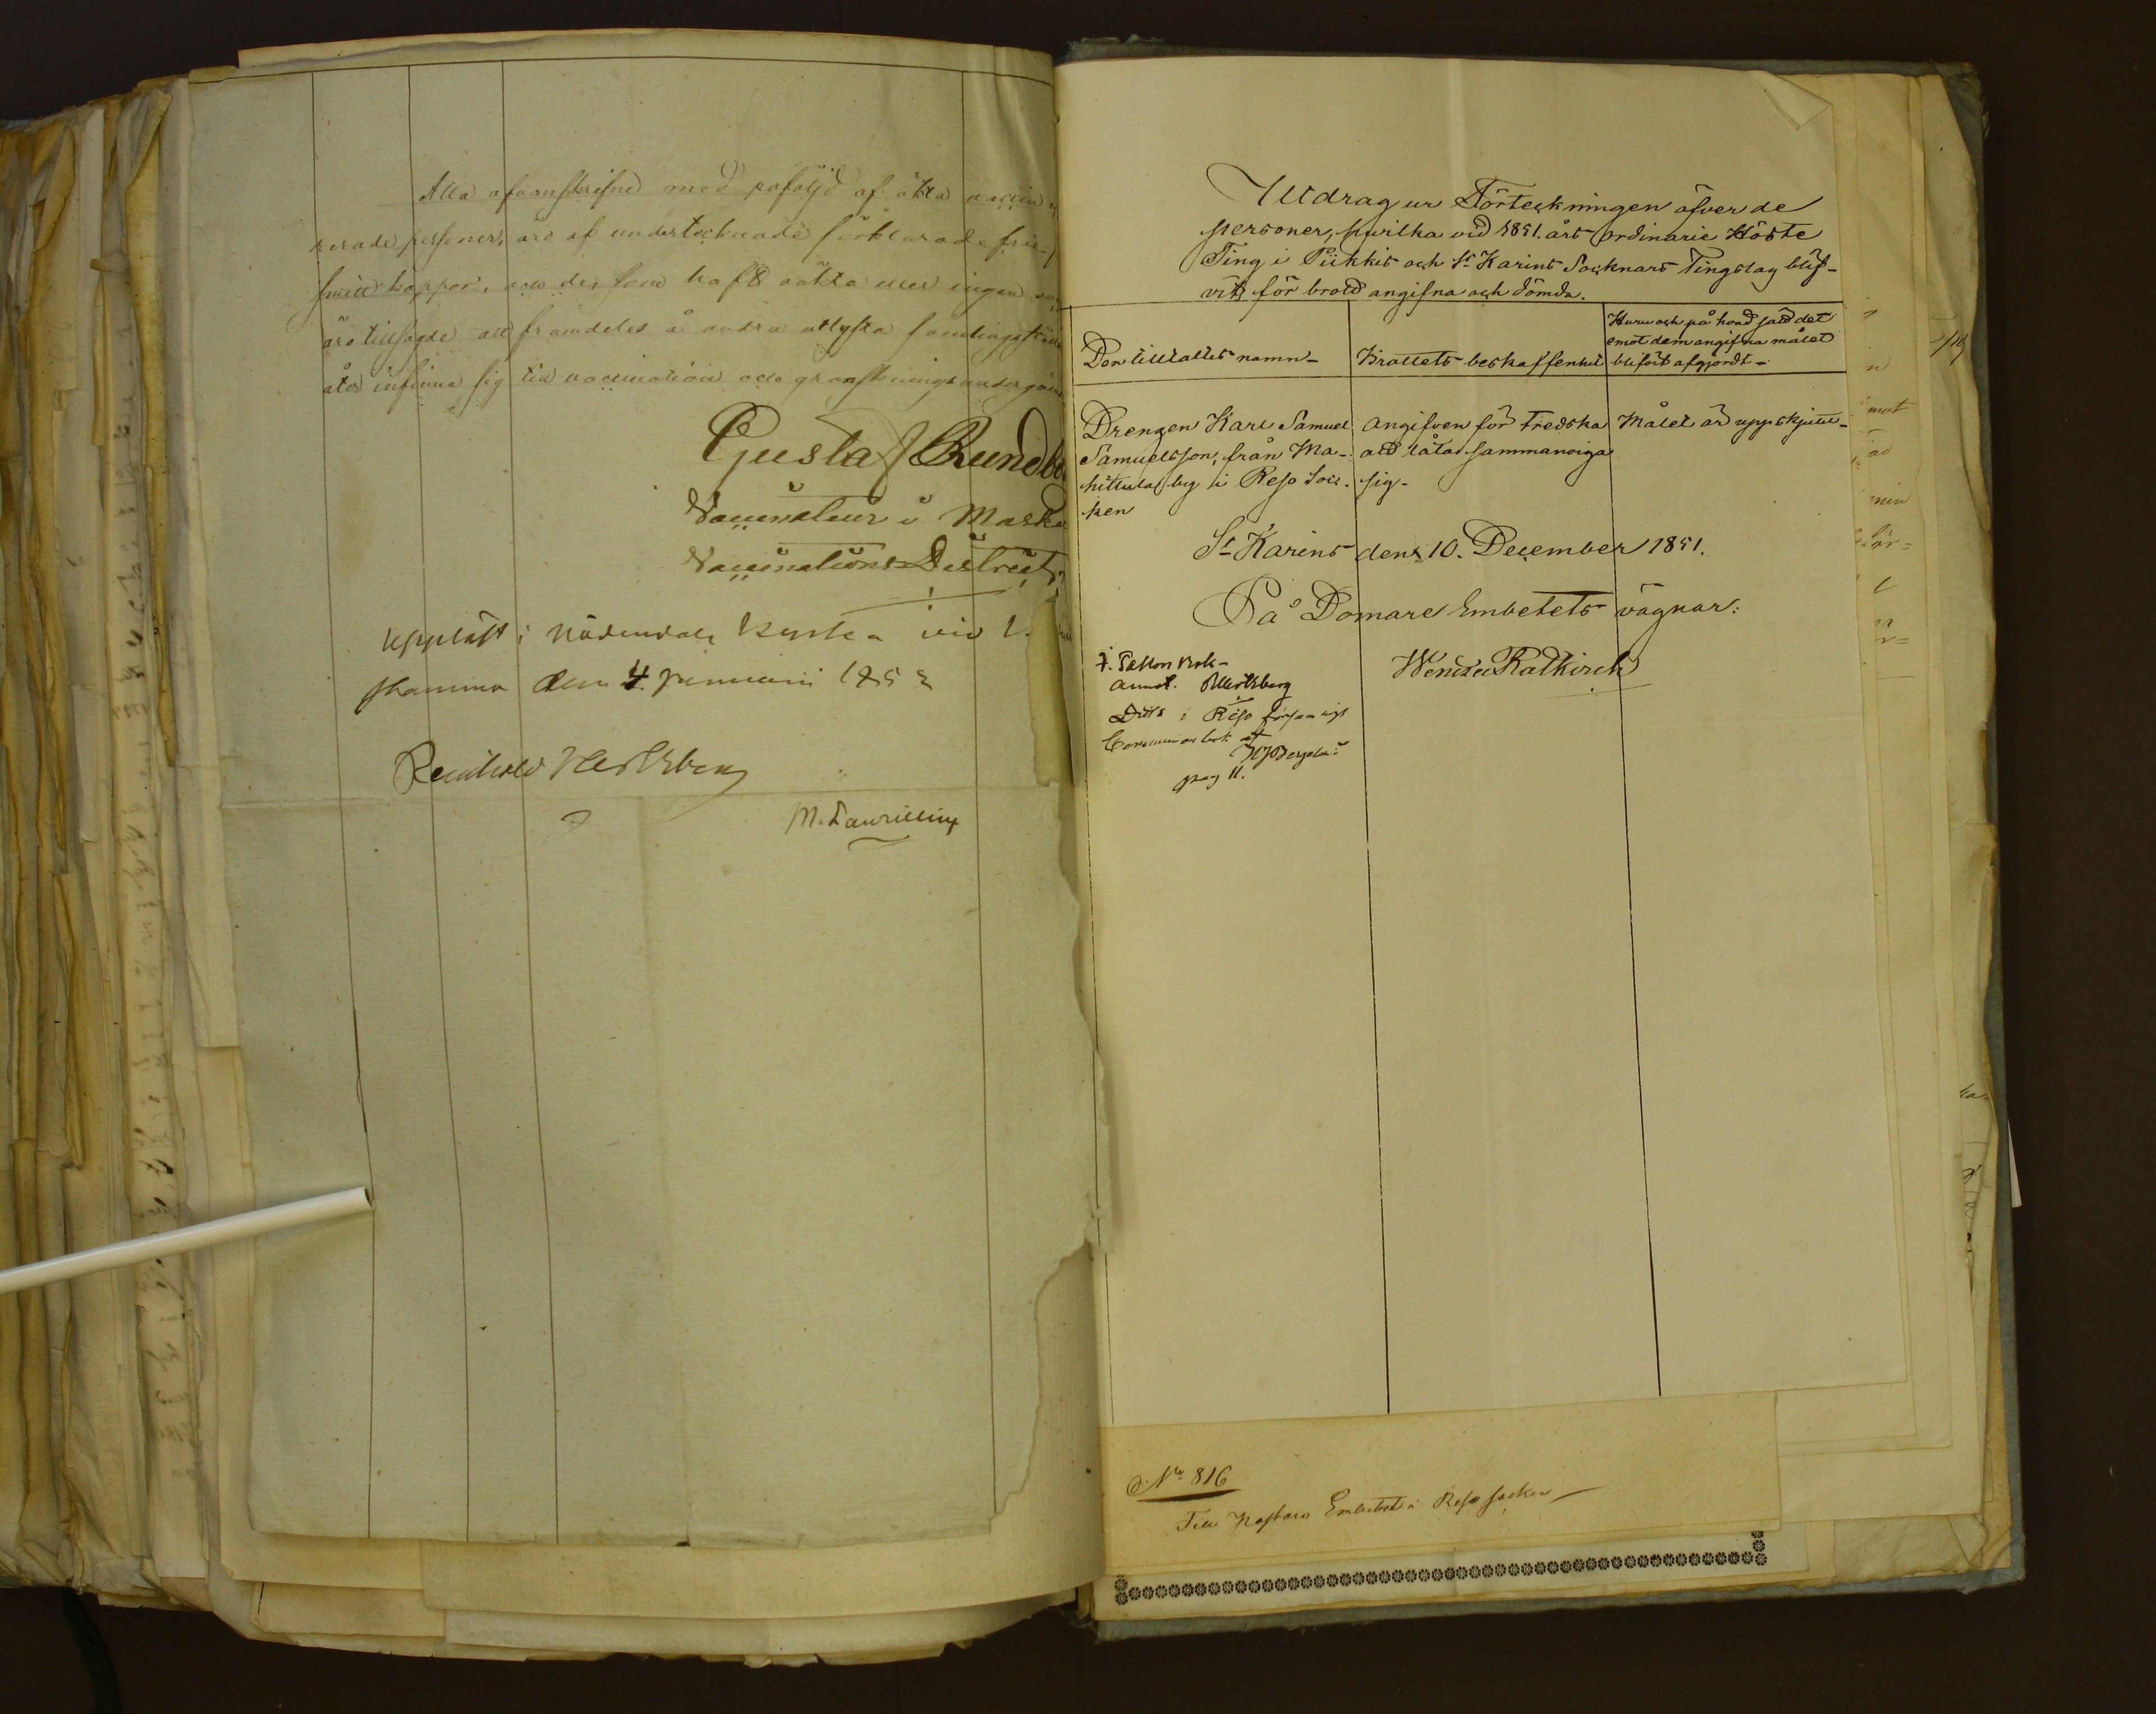 Alla ofvanskrifne med påföljd af äkta vaccin
nerade personer, äro af undertecknade förklarade fria
smittkoppor, och de, som haft oäkta eller ingen
äro tillsagde att framdeles å andra utlysta samlingsställe
åter infinna sig till vaccination och granskningsundergåen
Gustaf Rundb
Vaccinateur i Masku
Vaccinations District
Uppläst i Nådendals kyrka vid
stamma den 4 Januari 1852
Reinhold Hertzberg
M. Laurilling
Utdrag ur Förteckningen öfver de
personer, hvilka vid 1851. års ordinarie Höste
Ting i Piikkis och St Karins Socknars Tingslag blif-
vit för brott angifna och dömda.
Den tilltaldes namn-
Brottets beskaffenhet
Huru och på hvad sätt det
emot dem angifna målet
blifvit afgjordt-
Drengen Karl Samuel
Samuelsson, från Ma-
hittula by i Reso Soc-
ken
Angifven för tredska
att låta sammanviga
sig-
Målet är uppskjutet-
St Karins den 10. December 1851.
På Domare Embetets vägnar:
annot. RHertzberg
Ditto i Reso församlgs
Communion bok af
pag 11.
No 816
Till Pastors Embetet i Reso socken